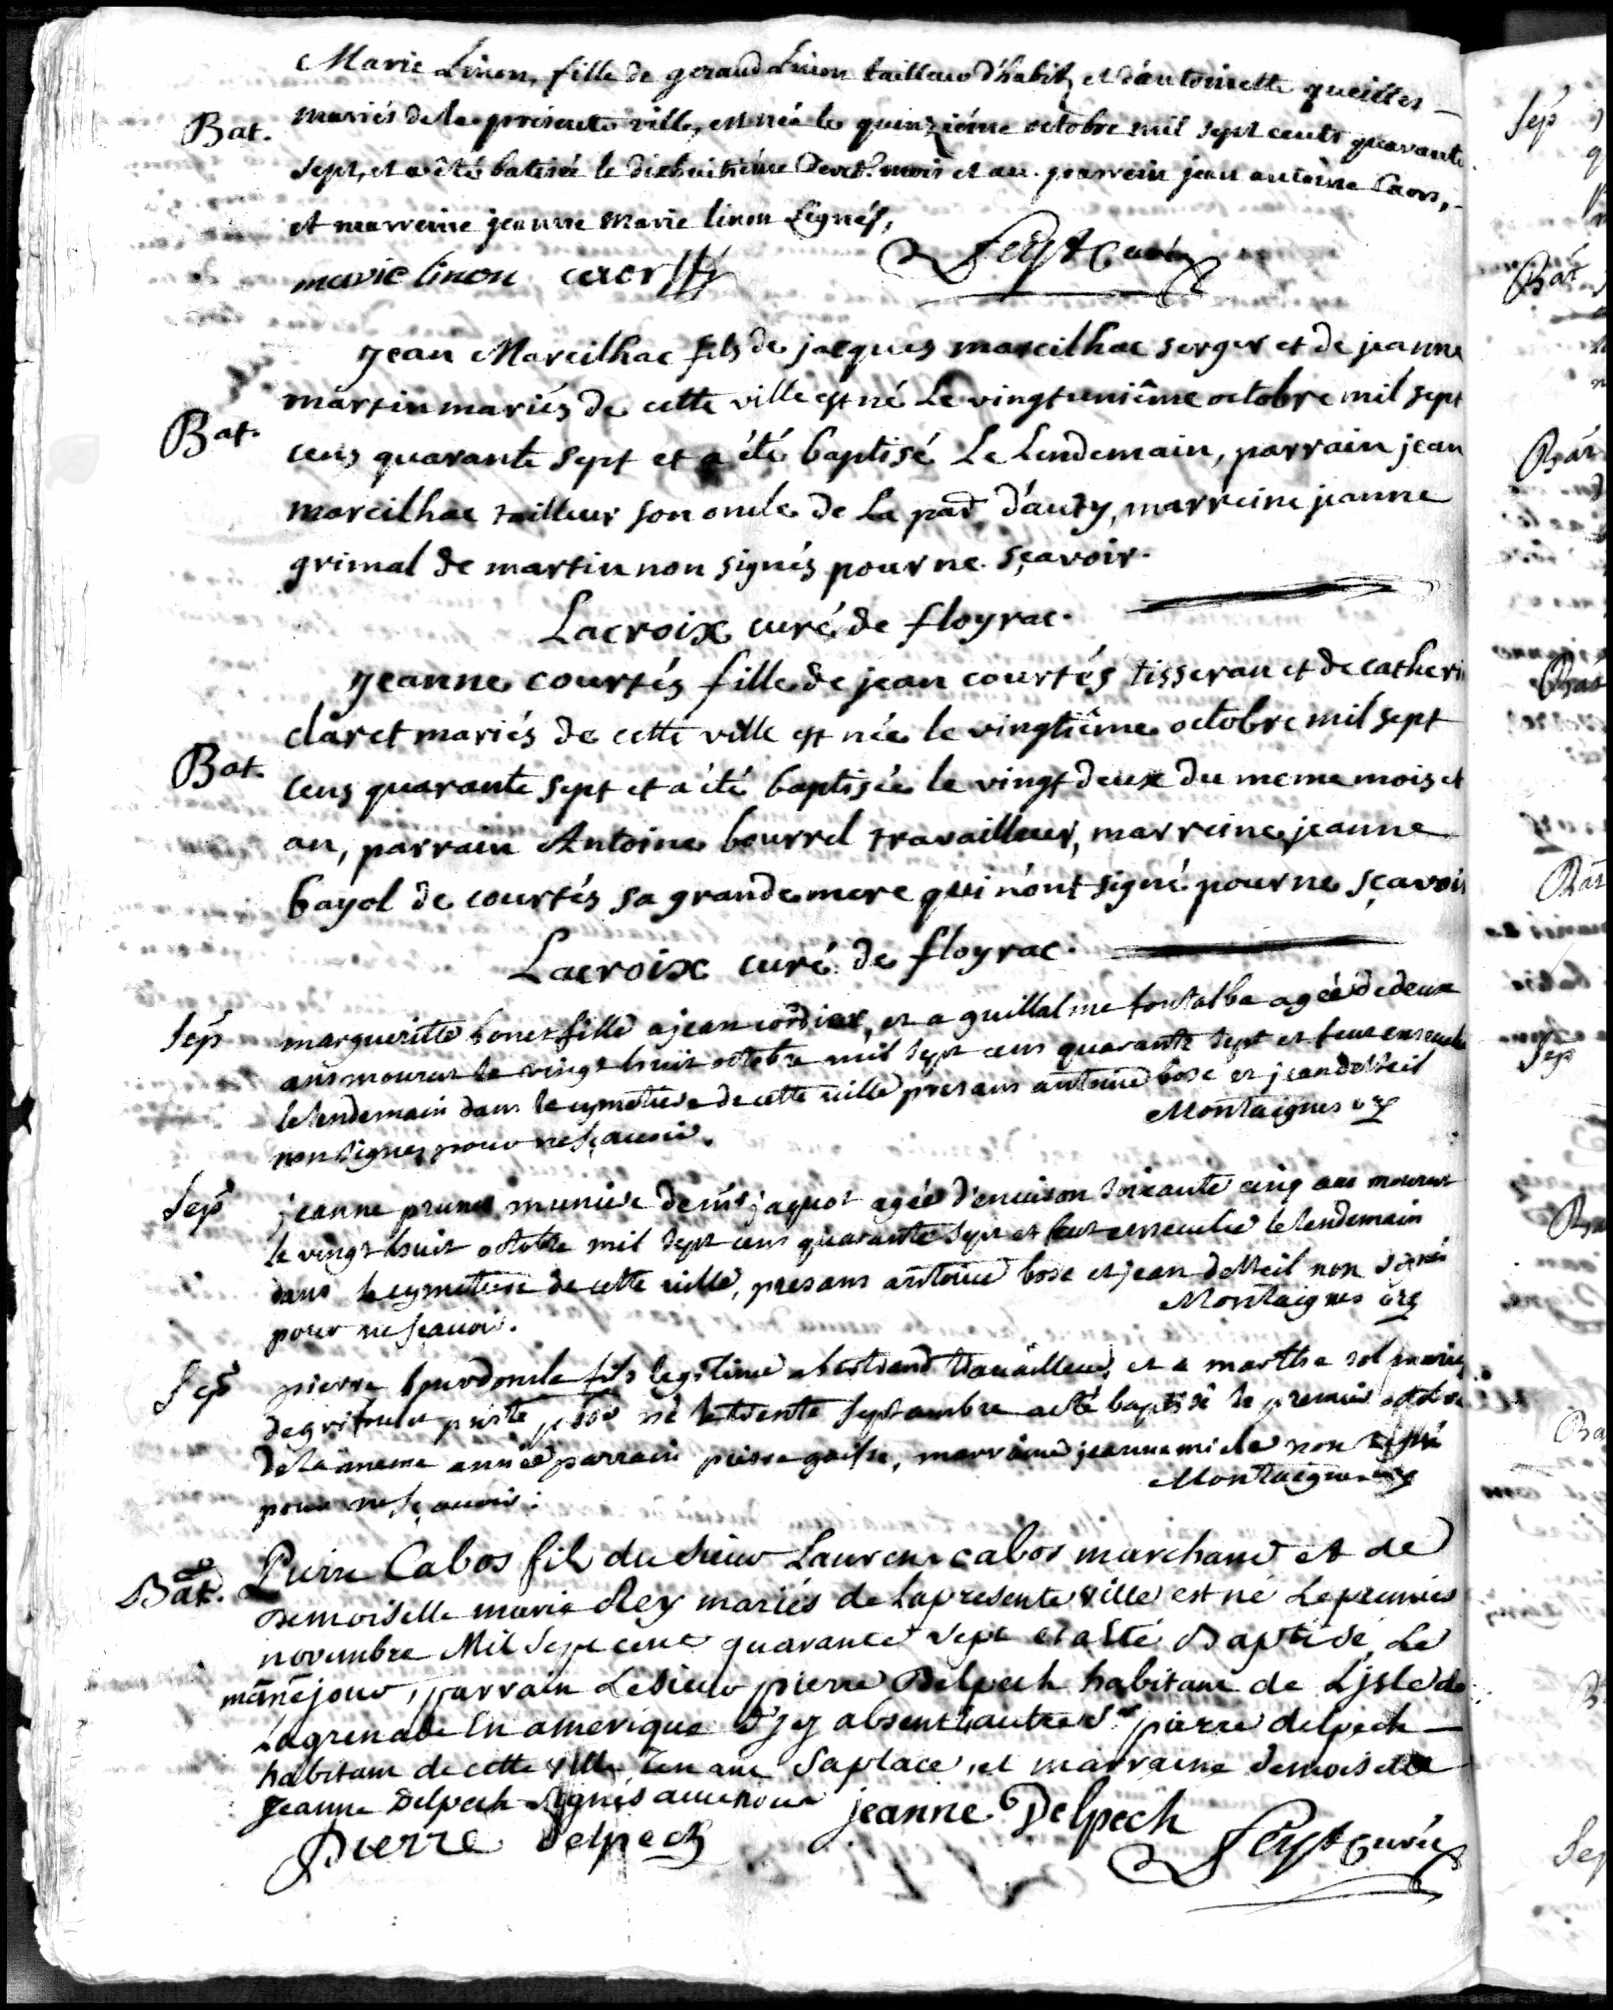 Marie Linon, fille de geraud Linon tailleur d'habitz et d'antoinette queilles
Bat. mariés de la presente ville, est née le quinziéme octobre mil sept cents quarante
sept, et a été batisée le dixhuitiéme desd. mois et an. parrein jean antoine Caors,
et marreine jeanne marie linon signés,
marie linon caors Feyt Curé
jean Marcilhac fils de jacques marcilhac serger et de jeanne
martin mariés de cette ville est né Le vingt uniême octobre mil sept
Bat. cens quarante sept et a été baptisé Le Lendemain, parrain jean
marcilhac tailleur son oncle de La par d'auty, marreine jeanne
grimal de martin non signés pour ne sçavoir.
Lacroix curé de floyrac.
jeanne courtés fille de jean courtés tisseran et de catheri
claret mariés de cette ville est née le vingtiême octobre mil sept
Bat. cens quarante sept et a été baptisée le vingt deux du meme mois et
an, parrain Antoine bourrel travailleur, marreine jeanne
bayol de courtés sa grande mere qui n'ont signé pour ne sçavoir
Lacroix curé de floyrac.
Sep margueritte bonet fille a jean et a guillalme fontalba agée de deux
ans mourut le vingt huit octobre mil sept cens quarante sept et feut ensevelie
le lendemain dans le cymetiere de cette ville presans antoine bosc et jean delteil
non signes pour ne sçauoir. Montaignes
Sep jeanne prunet muniere de mr jaquot agée d'enuiron soixante cinq ans mourut
le vingt huit octobre mil sept cens quarante sept et feut enseuelie le lendemain
dans le cymetiere de cette ville, presans antoine bosc et jean delteil non signés
pour ne sçauoir. Montaignes
Sep pierre bourdoncle fils legitime a bertrand trauailleur, et a marthe sol mariés
né le trente septambre a eté baptisé le premier octobre
de la meme année parrain pierre, marraine jeanne non signé
pour ne sçauoir. Montaignes
Bat. Pierre Cabos fils du sieur Laurens cabos marchand et de
demoiselle marie Rey mariés de la presente ville est né Le premier
novembre Mil sept cent quarante sept et a eté Baptisé Le
même jour, parrain Le sieur pierre Delpech habitant de L'jsle de
La grenade En amerique Et jcy absent autre Sr pierre delpech
habitant de cette ville tenant sa place, et marraine demoiselle
Jeanne Delpech signés auec nous jeanne Delpech
Pierre Delpech Feyt Curé
Sep
Bat
Bat
Bat
Bat
Sep